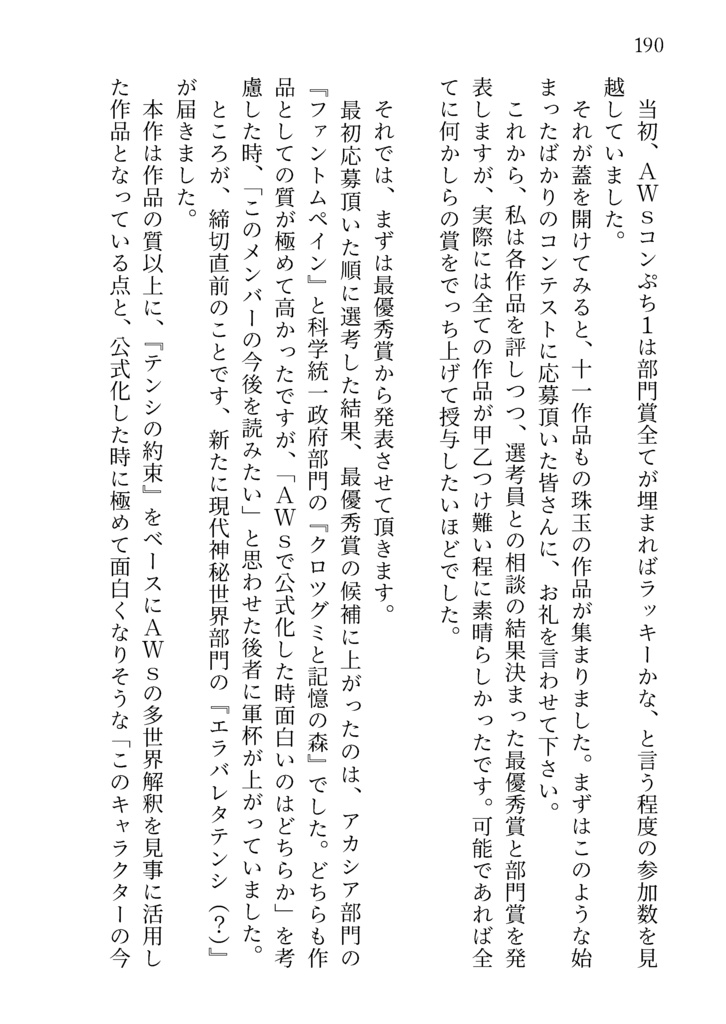 190
　当初、ＡＷｓコンぷち１は部門賞全てが埋まればラッキーかな、と言う程度の参加数を見
越していました。
　それが蓋を開けてみると、十一作品もの珠玉の作品が集まりました。まずはこのような始
まったばかりのコンテストに応募頂いた皆さんに、お礼を言わせて下さい。
　これから、私は各作品を評しつつ、選考員との相談の結果決まった最優秀賞と部門賞を発
表しますが、実際には全ての作品が甲乙つけ難い程に素晴らしかったです。可能であれば全
てに何かしらの賞をでっち上げて授与したいほどでした。
　それでは、まずは最優秀賞から発表させて頂きます。
　最初応募頂いた順に選考した結果、最優秀賞の候補に上がったのは、アカシア部門の
『ファントムペイン』と科学統一政府部門の『クロツグミと記憶の森』でした。どちらも作
品としての質が極めて高かったですが、「ＡＷｓで公式化した時面白いのはどちらか」を考
慮した時、「このメンバーの今後を読みたい」と思わせた後者に軍杯が上がっていました。
　ところが、締切直前のことです、新たに現代神秘世界部門の『エラバレタテンシ（？）』
が届きました。
　本作は作品の質以上に、『テンシの約束』をベースにＡＷｓの多世界解釈を見事に活用し
た作品となっている点と、公式化した時に極めて面白くなりそうな「このキャラクターの今